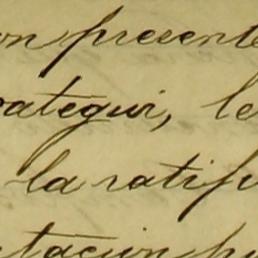 on presente
ategui, le
la ratifi
tacion pu